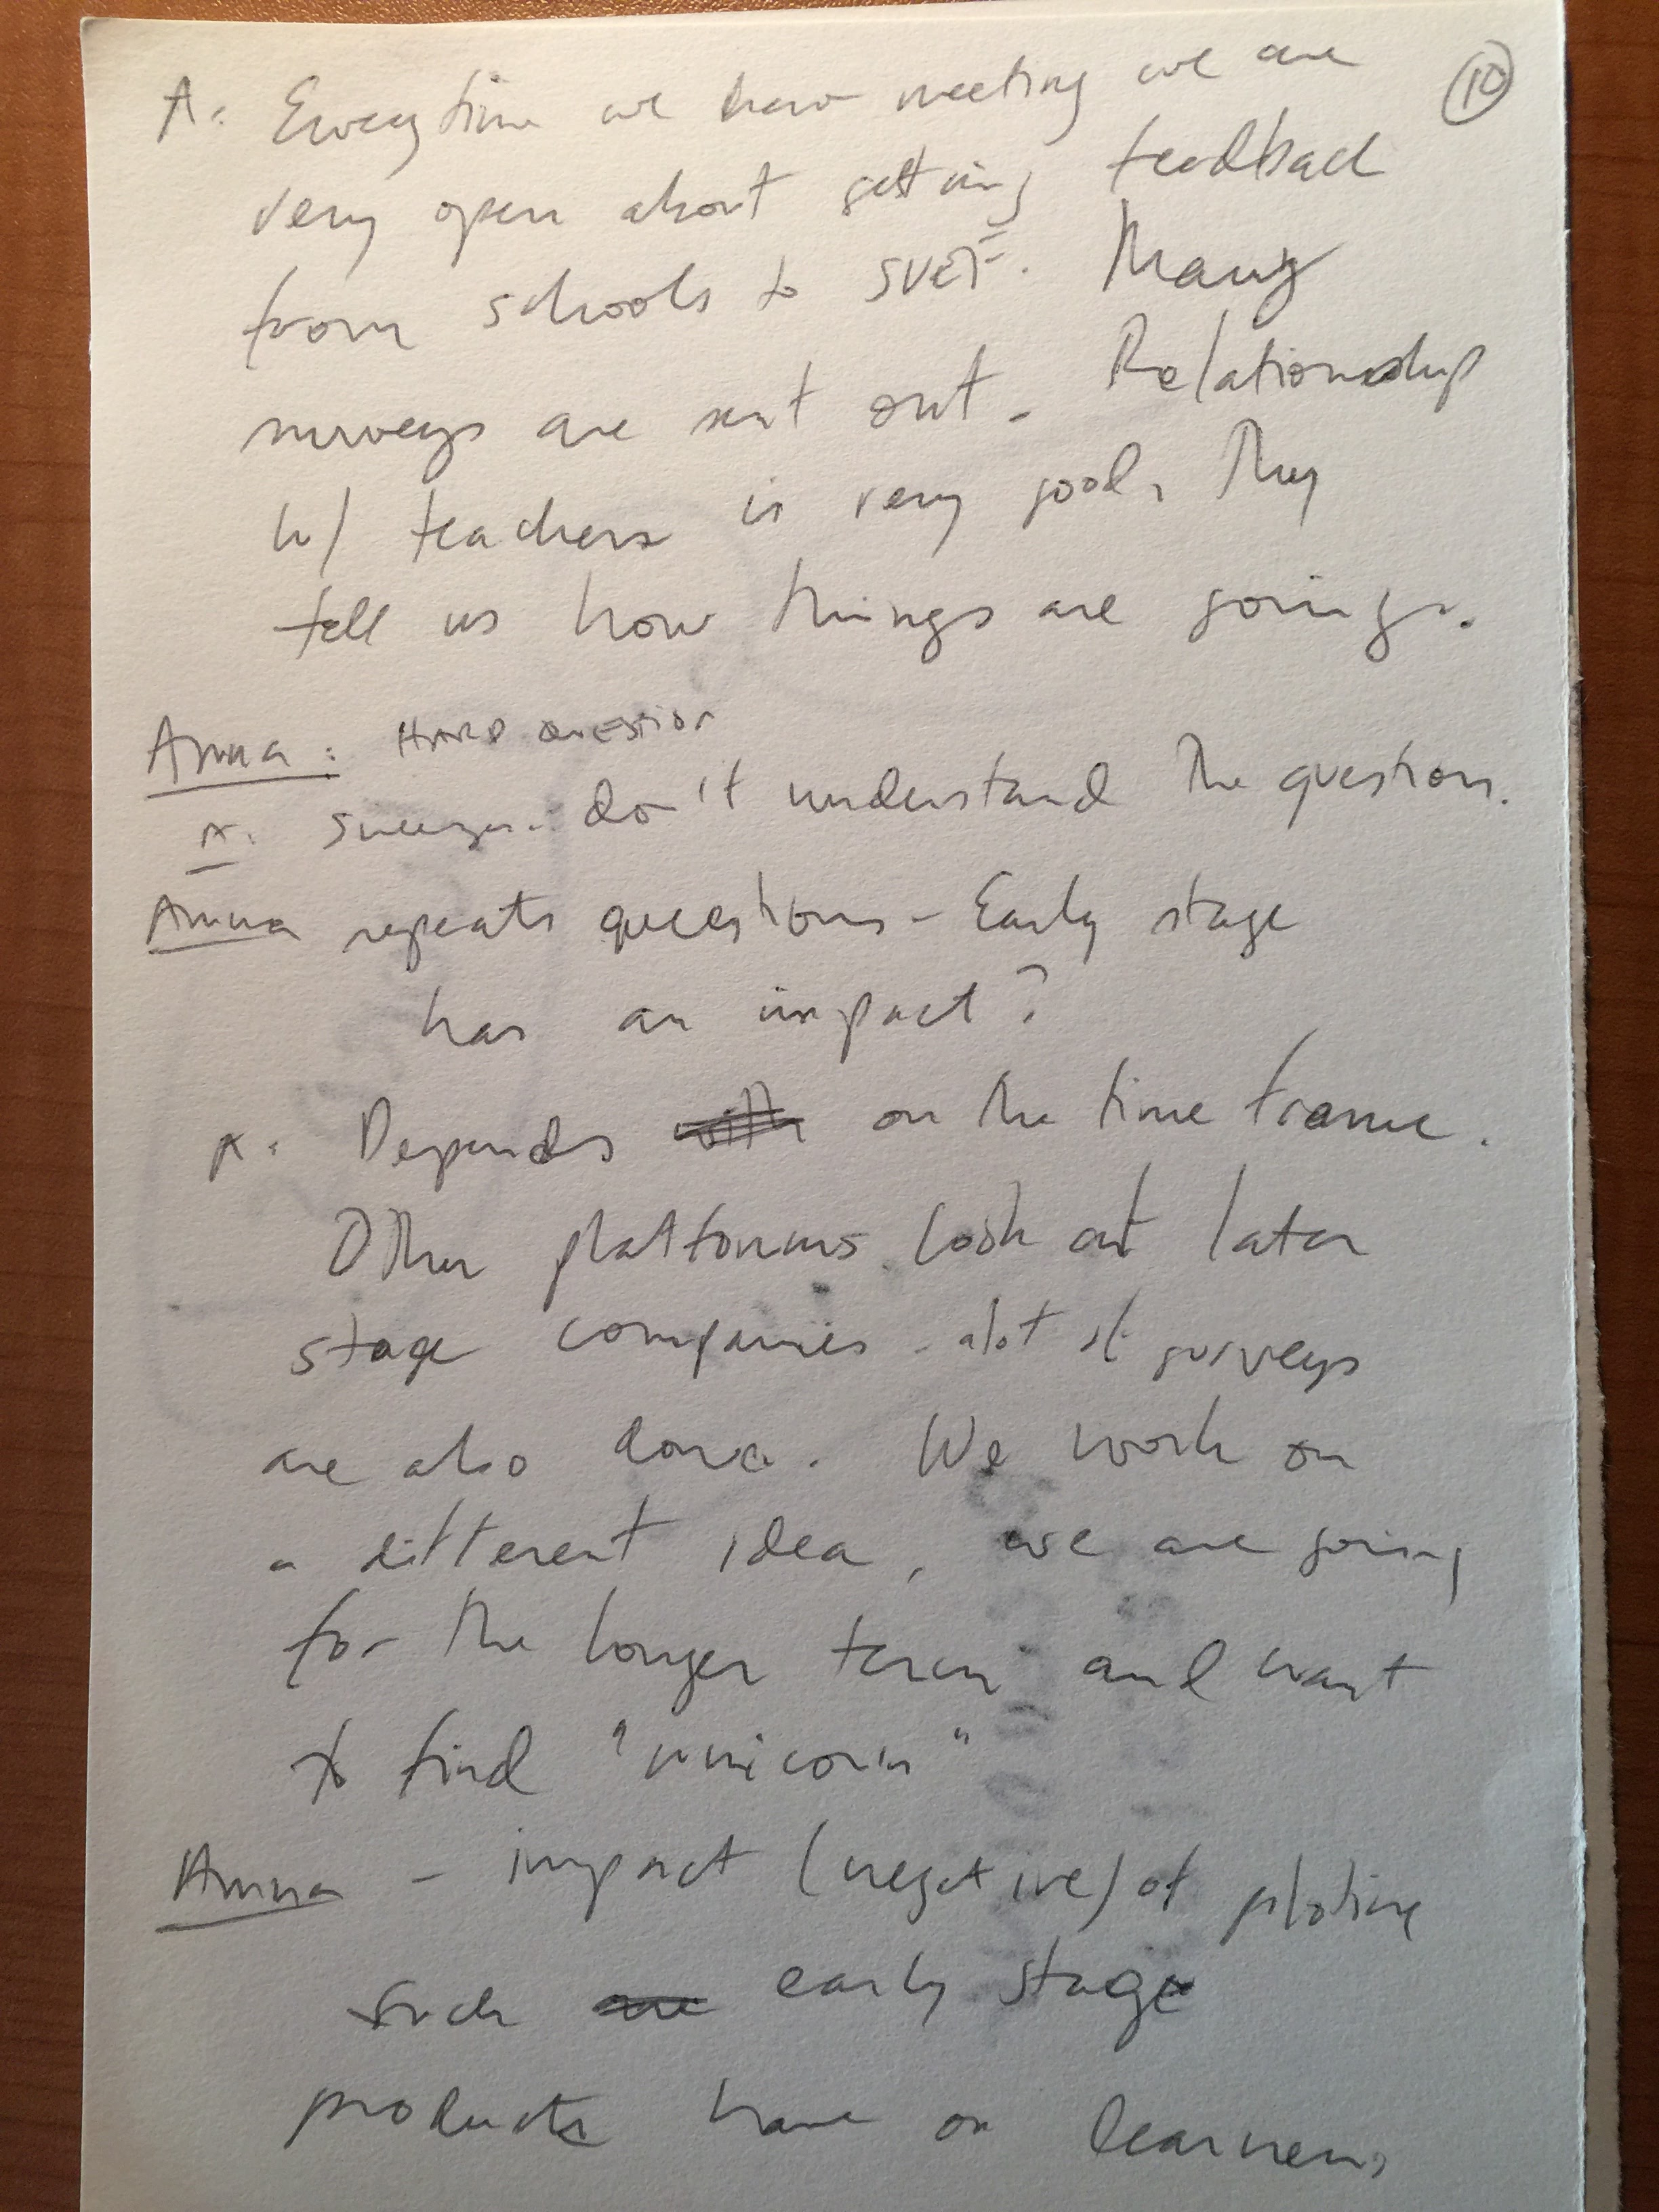 A: Everytime we have meeting we are
10
very open about getting feedback
from schools to SVET. Many
surveys are sent out. Relationship
w/ teachers is very good, They
tell us how things are going.
Anna: HARD QUESTION
A: don't understand the question.
Anna repeats questions - Early stage
has an impact?
A: Depends with on the time frame.
Other platforms look at later
stage companies. alot of surveys
are also done. We work on
a different idea, we are going
for the longer term and want
to find "unicorn"
Anna - impact (negative) of
such are early stage
products have on learners,